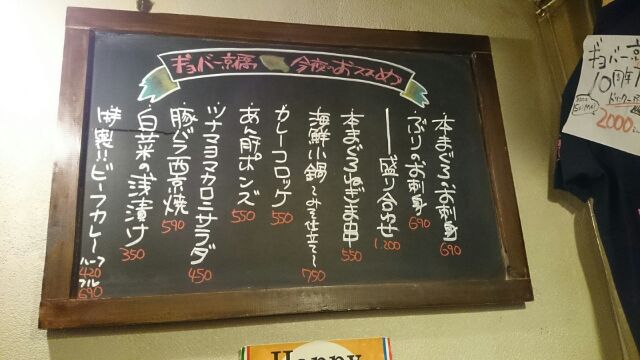 ギョバー京橋 今夜のおススめ
本まぐろのお刺身 690
ぶりのお刺身 690
盛り合わせ 1.200
本まぐろねぎま串 550
海鮮小鍋〜みそ仕立て〜 750
カレーコロッケ 550
あん肝ポンズ 550
ツナマヨマカロニサラダ 450
豚バラ西京焼 590
白菜の浅漬け 350
特製!!ビーフカレー ハーフ 420 フル 690
ギョバー京
10周年
2000
Happy